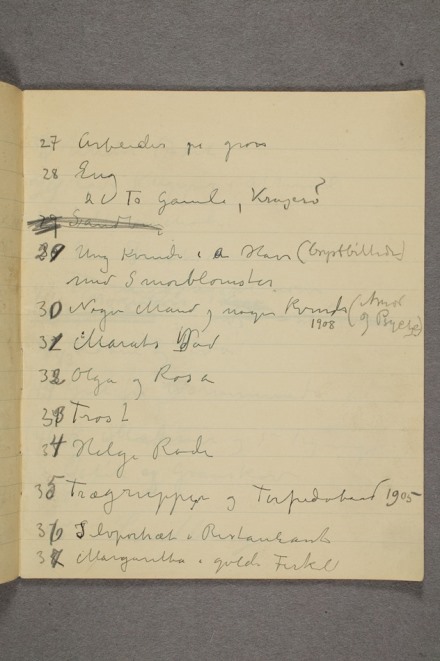 27 Arbeider
28 Eng
To Gamle, Kragerø?
29
29 Ung Kvinde i Have (Brystbillede)
med Smørblomster
30 Nøgen Mand og nøgen Kvinde (Amor
1908 og Psyche)
31 Marats Død
32 Olga og Rosa
33 Trost
34 Helge Rode
35 Trægruppe og Torpedobaad 1905
36 Selvportræt i Restaurant
37 Margaretha i